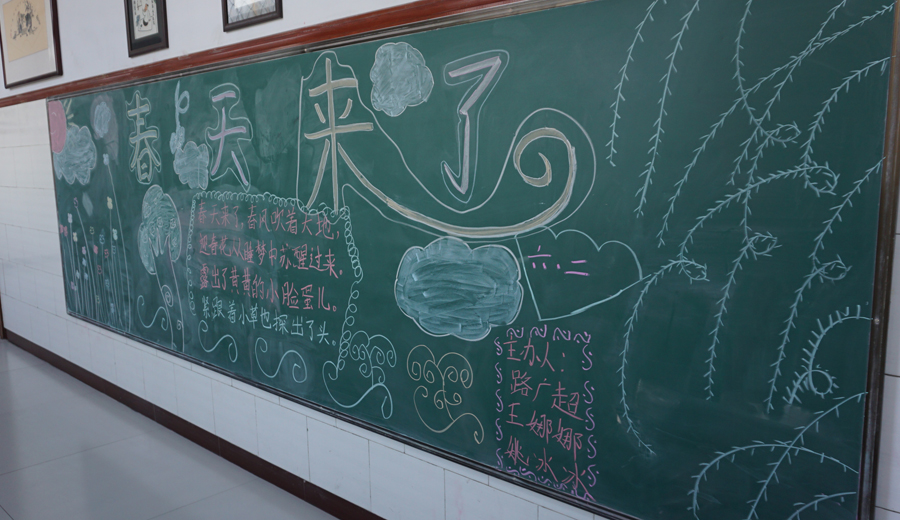 春天来了
春天来了,春风吹着大地,
迎春花从睡梦中苏醒过来。
露出了黄黄的小脸蛋儿。
紧跟着小草也探出了头。
六.二
主办人:
路广超
王娜娜
姚冰冰